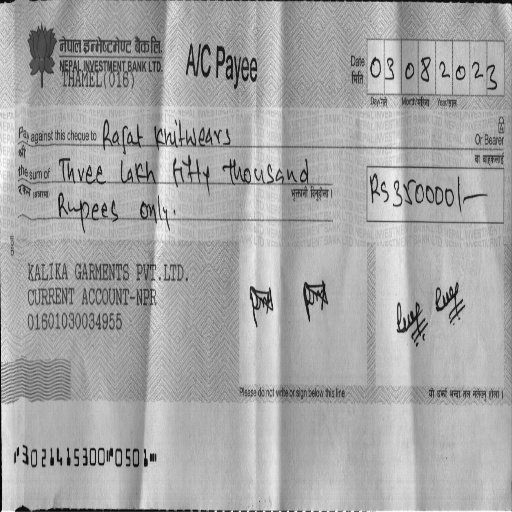 नेपाल इन्भेष्टमेण्ट बैंक लि.
NEPAL INVESTMENT BANK LTD.
THAMEL(016)
A/C Payee
Date
मिति
03 08 2023
Day/गते Month/महिना Year/साल
Pay against this cheque to Rafat Knitwears Or Bearer
श्री वा वाहकलाई
the sum of Three lakh fifty thousand
रकम अक्षरमा भुक्तानी दिनुहोला ।
Rs 350000/-
Rupees only.
KALIKA GARMENTS PVT.LTD.
CURRENT ACCOUNT-NPR
01601030034955
Please do not write or sign below this line
यो रेखा भन्दा तल नलेख्नु होला ।
⑈302141530⑈0501⑈